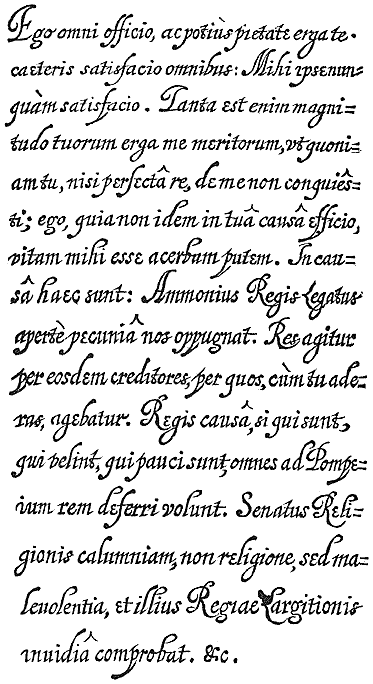 Ego omni officio, ac potiùs pietate erga te.
caeteris satisfacio omnibus: Mihi ipse nun=
quàm satisfacio. Tanta est enim magni=
tudo tuorum erga me meritorum, vt quoni=
am tu, nisi perfectâ re, de me non conquiês=
ti; ego, quia non idem in tuâ causâ efficio,
vitam mihi esse acerbam putem. In cau=
sâ haec sunt: Ammonius Regis Legatus
apertè pecuniâ nos oppugnat. Res agitur
per eosdem creditores, per quos, cùm tu ade=
ras, agebatur. Regis causâ, si qui sunt,
qui velint, qui pauci sunt, omnes ad Pompe=
ium rem deferri volunt. Senatus Reli=
gionis calumniam, non religione, sed ma=
leuolentia, et illius Regiae Largitionis
inuidiâ comprobat. &c.